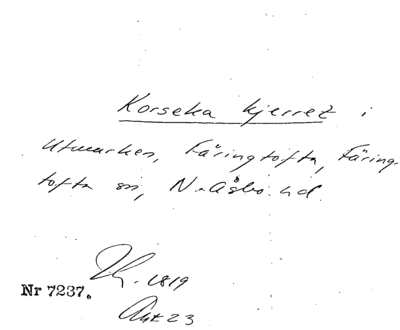 Korseka kjerret i
Utmarken, Färingtofta, Färing-
tofta sn, N. Åsbo hd.
1819
Nr 7237.
Akt 23